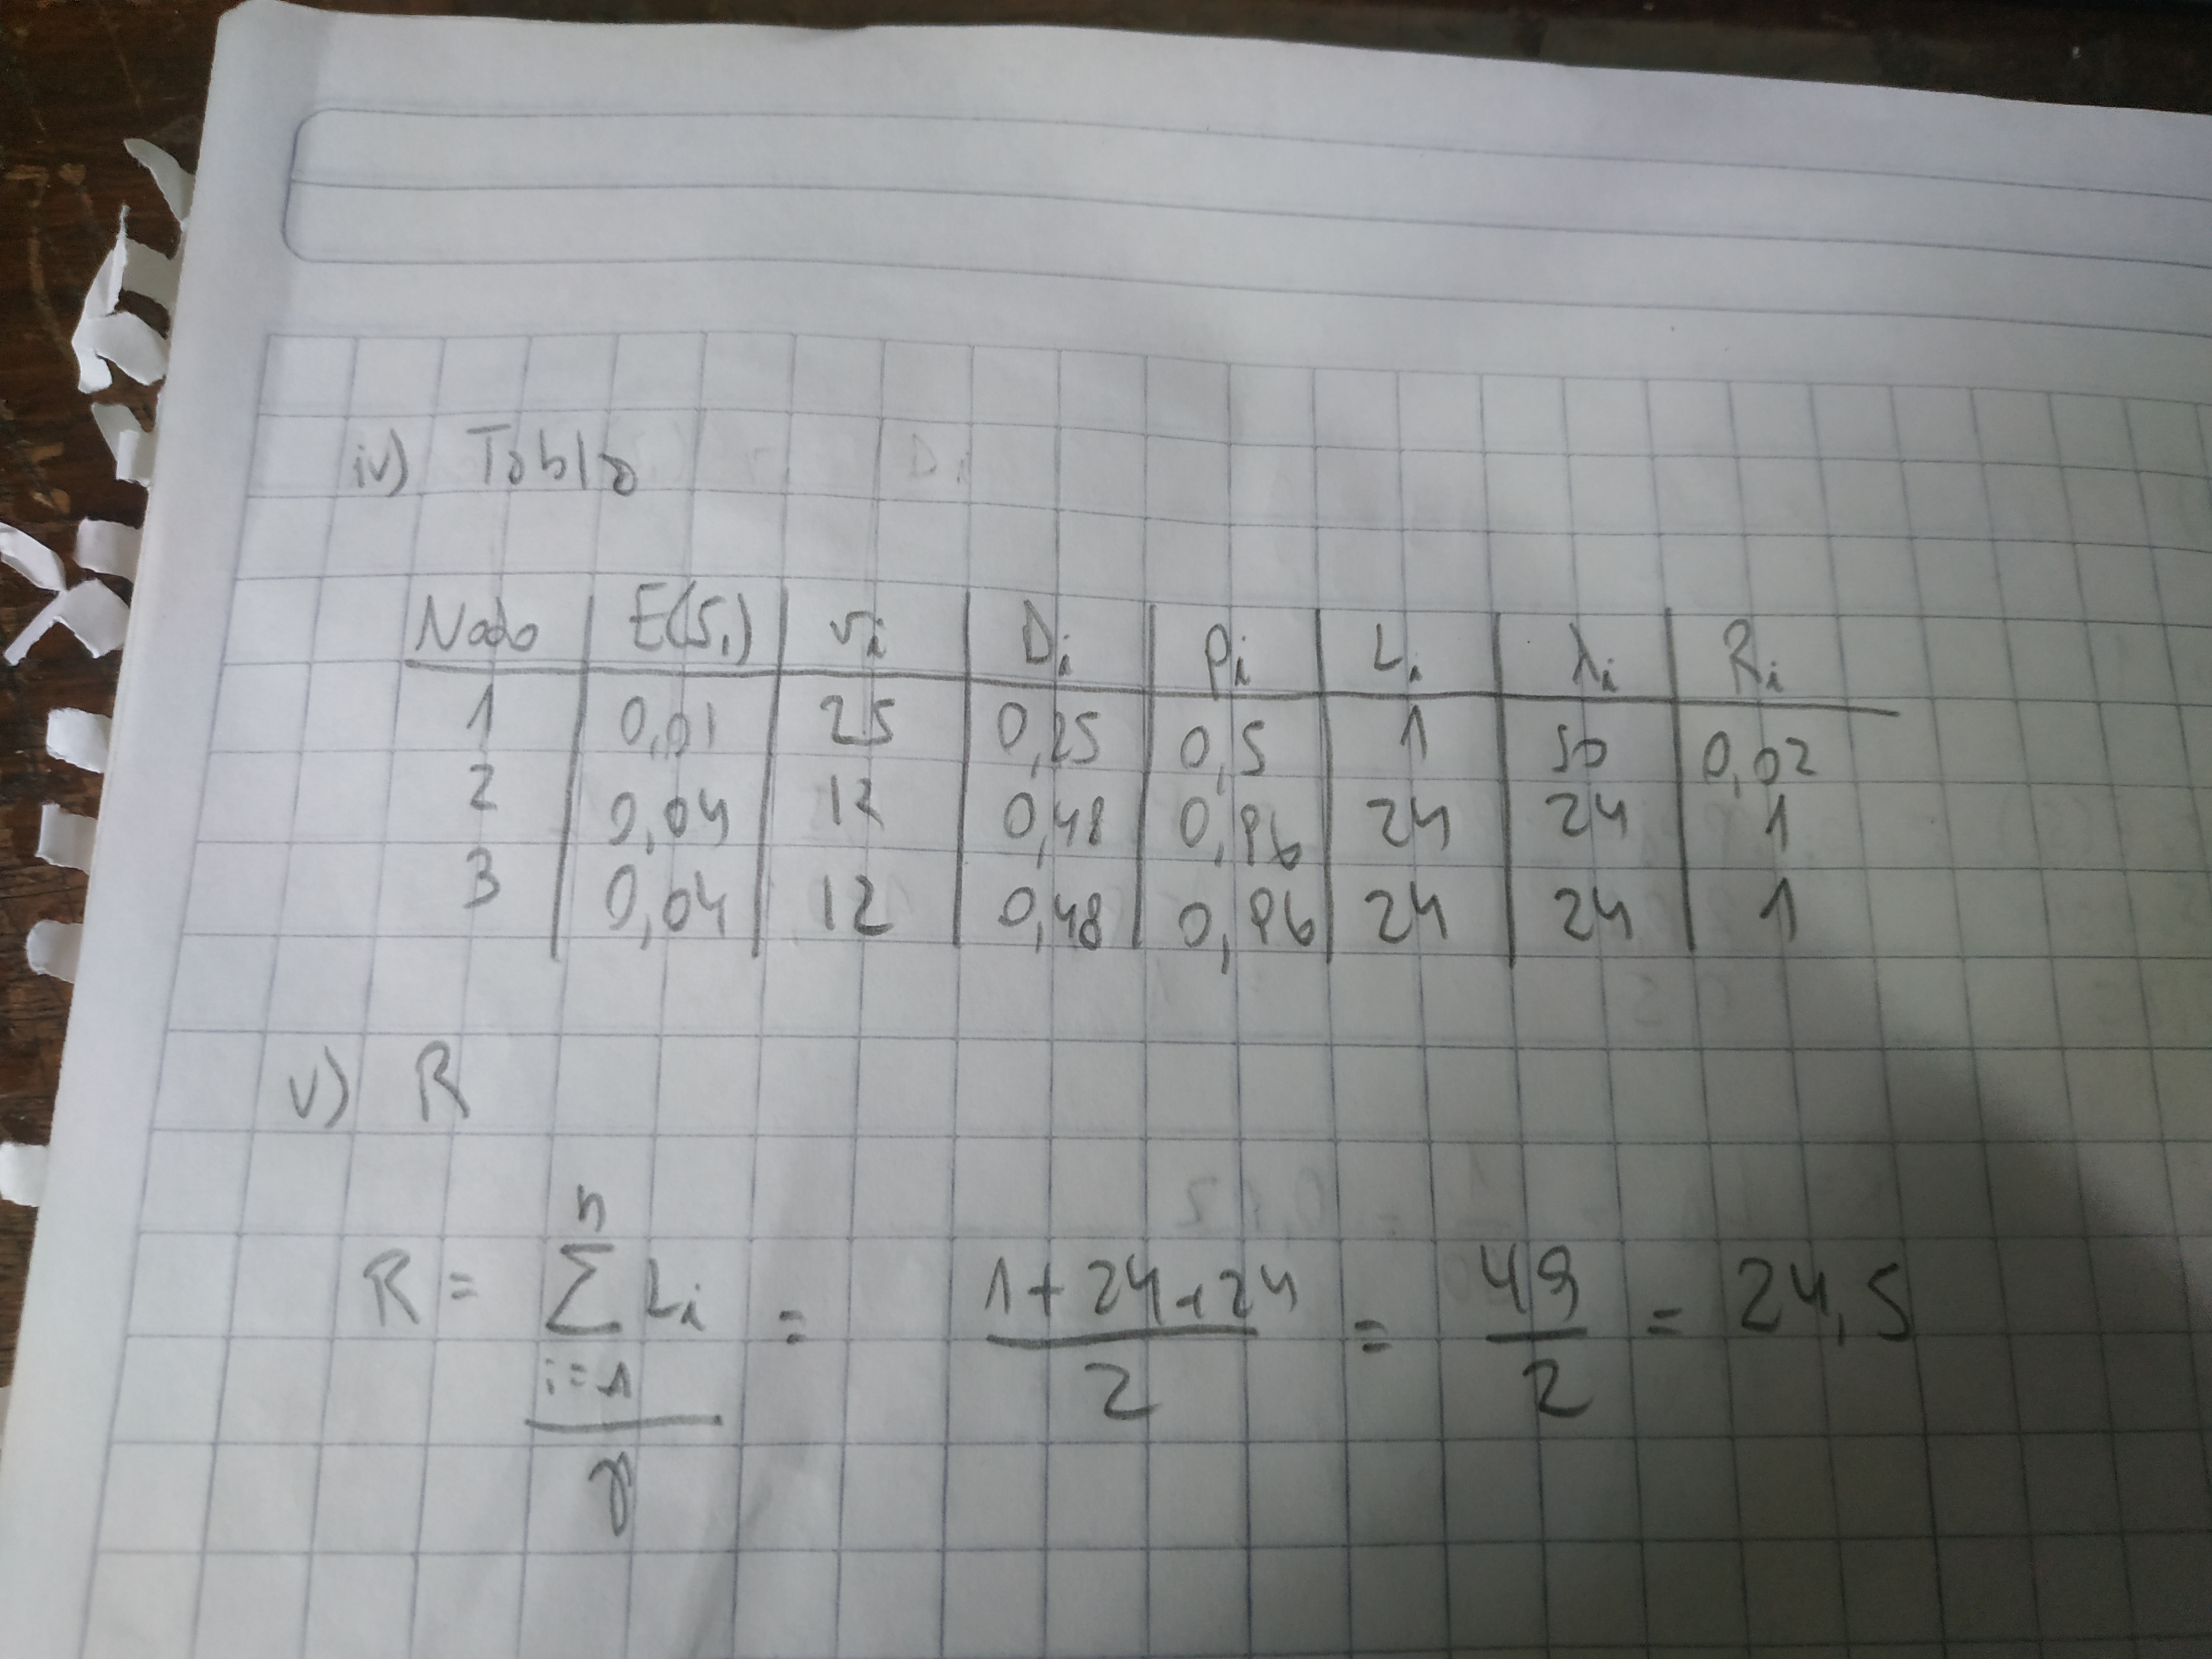 iv) Tabla
Nodo | E(Si) | vi | Di | ρi | Li | λi | Ri
1 | 0,01 | 25 | 0,25 | 0,5 | 1 | 50 | 0,02
2 | 0,04 | 12 | 0,48 | 0,96 | 24 | 24 | 1
3 | 0,04 | 12 | 0,48 | 0,96 | 24 | 24 | 1
v) R
R = (∑_{i=1}^{n} Li) / γ = (1+24+24) / 2 = 49 / 2 = 24,5